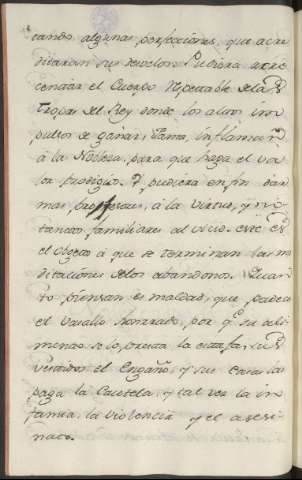 cando algunas perfecciones, que acre
ditaran su devocion. Pudiera acre
centar el Cuerpo respetable de las
Tropas del Rey donde los altos im
pulsos de ganar fama, inflaman
á la Nobleza, para que haga el va
lor prodigios. Y pudiera en fin dar
mas á la virtud, y no
tantos familiares al vicio. este es
el obgeto á que se terminan las me
ditaciones delos abandonos. Quan
to piensan es maldad, que padece
el Vasallo honrrado, por q.e su ali
mento selo presta la estafa, sus
Vestidos el Engaño, y sus Casas las
paga la Cautela, y tal vez la in
famia, la violencia y el asesi
nato.